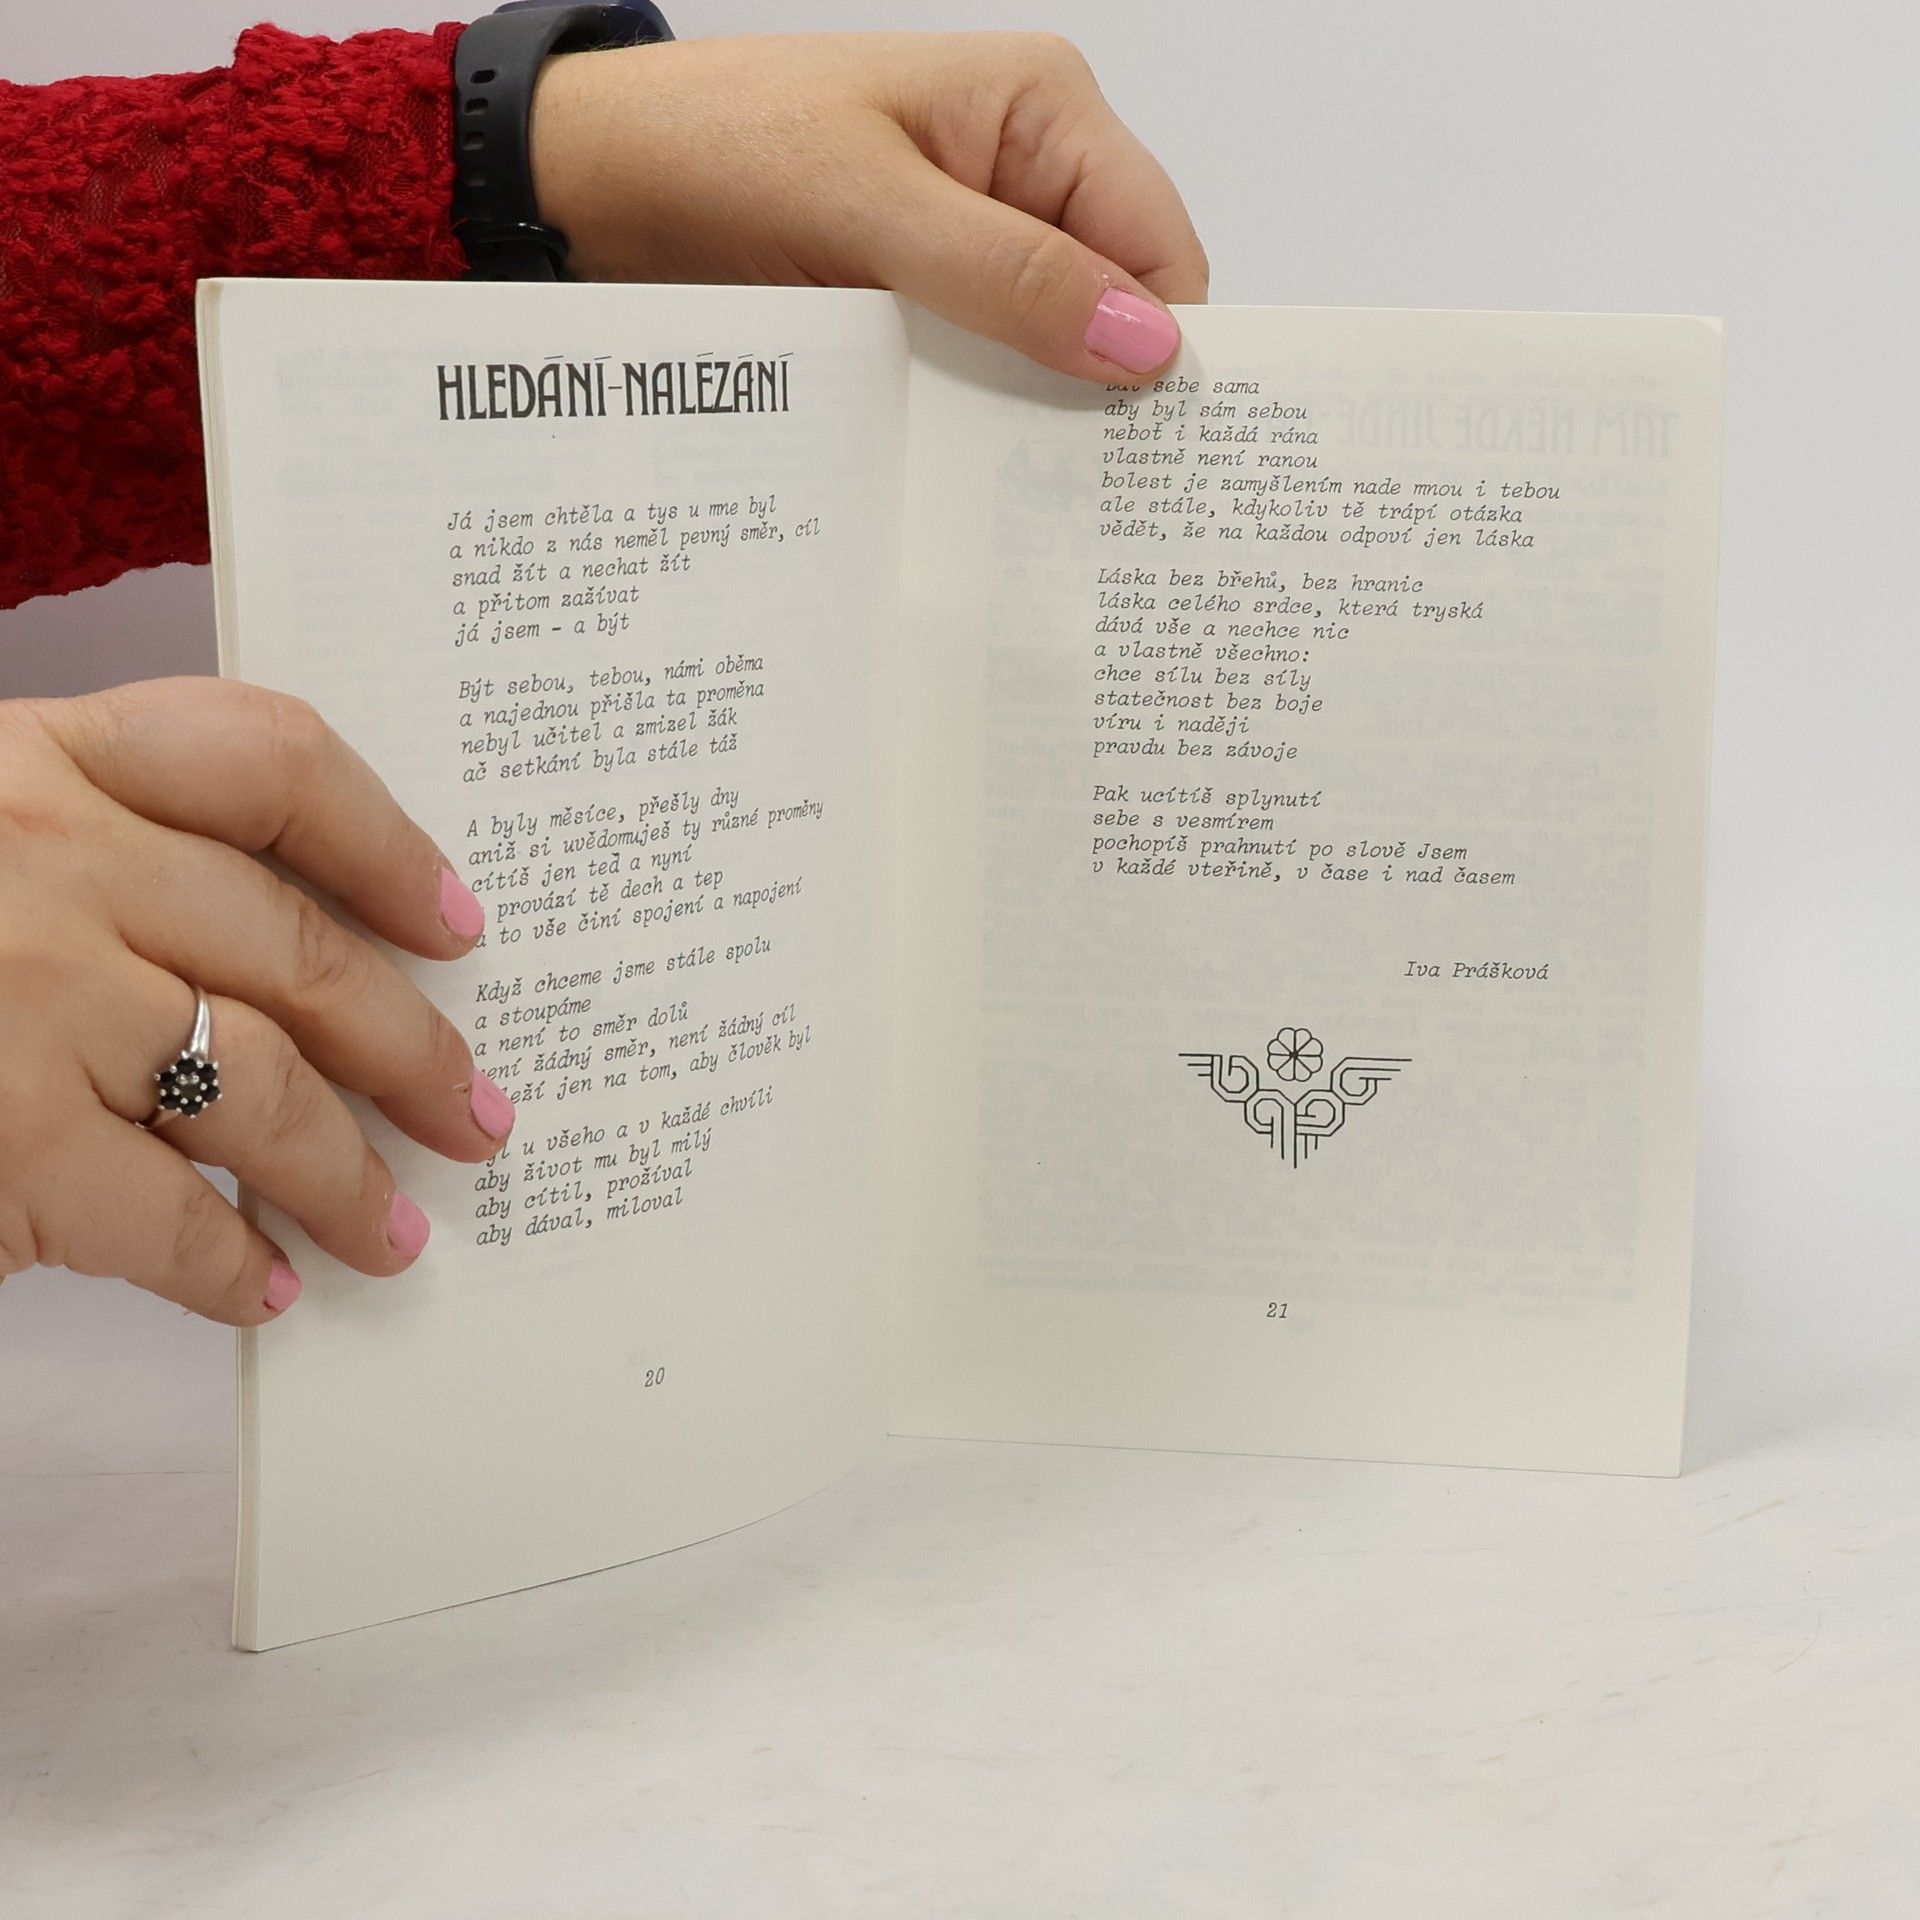 HLEDÁNÍ-NALÉZÁNÍ
Já jsem chtěla a tys u mne byl
a nikdo z nás neměl pevný směr, cíl
snad žít a nechat žít
a přitom zažívat
já jsem - a být
Být sebou, tebou, námi oběma
a najednou přišla ta proměna
nebyl učitel a zmizel žák
ač setkání byla stále táž
A byly měsíce, přešly dny
aniž si uvědomuješ ty různé proměny
cítíš jen teď a nyní
provází tě dech a tep
a to vše činí spojení a napojení
Když chceme jsme stále spolu
a stoupáme
a není to směr dolů
není žádný směr, není žádný cíl
jen na tom, aby člověk byl
u všeho a v každé chvíli
aby život mu byl milý
aby cítil, prožíval
aby dával, miloval
20
sebe sama
aby byl sám sebou
neboť i každá rána
vlastně není ranou
bolest je zamyšlením nade mnou i tebou
ale stále, kdykoliv tě trápí otázka
vědět, že na každou odpoví jen láska
Láska bez břehů, bez hranic
láska celého srdce, která tryská
dává vše a nechce nic
a vlastně všechno:
chce sílu bez síly
statečnost bez boje
víru i naději
pravdu bez závoje
Pak ucítíš splynutí
sebe s vesmírem
pochopíš prahnutí po slově Jsem
v každé vteřině, v čase i nad časem
Iva Prášková
21